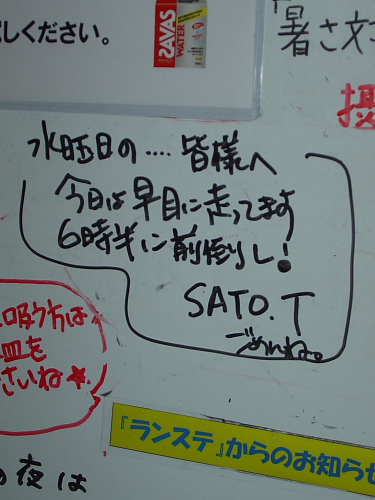 しください。
SAVAS
WATER
暑さ対
摂
水曜日の‥‥皆様へ
今日は早目に走ってます
6時半に前倒し!
SATO.T
ごめんね。
吸う方は
皿を
さいね★.
『ランステ』からのお知らせ
の夜は